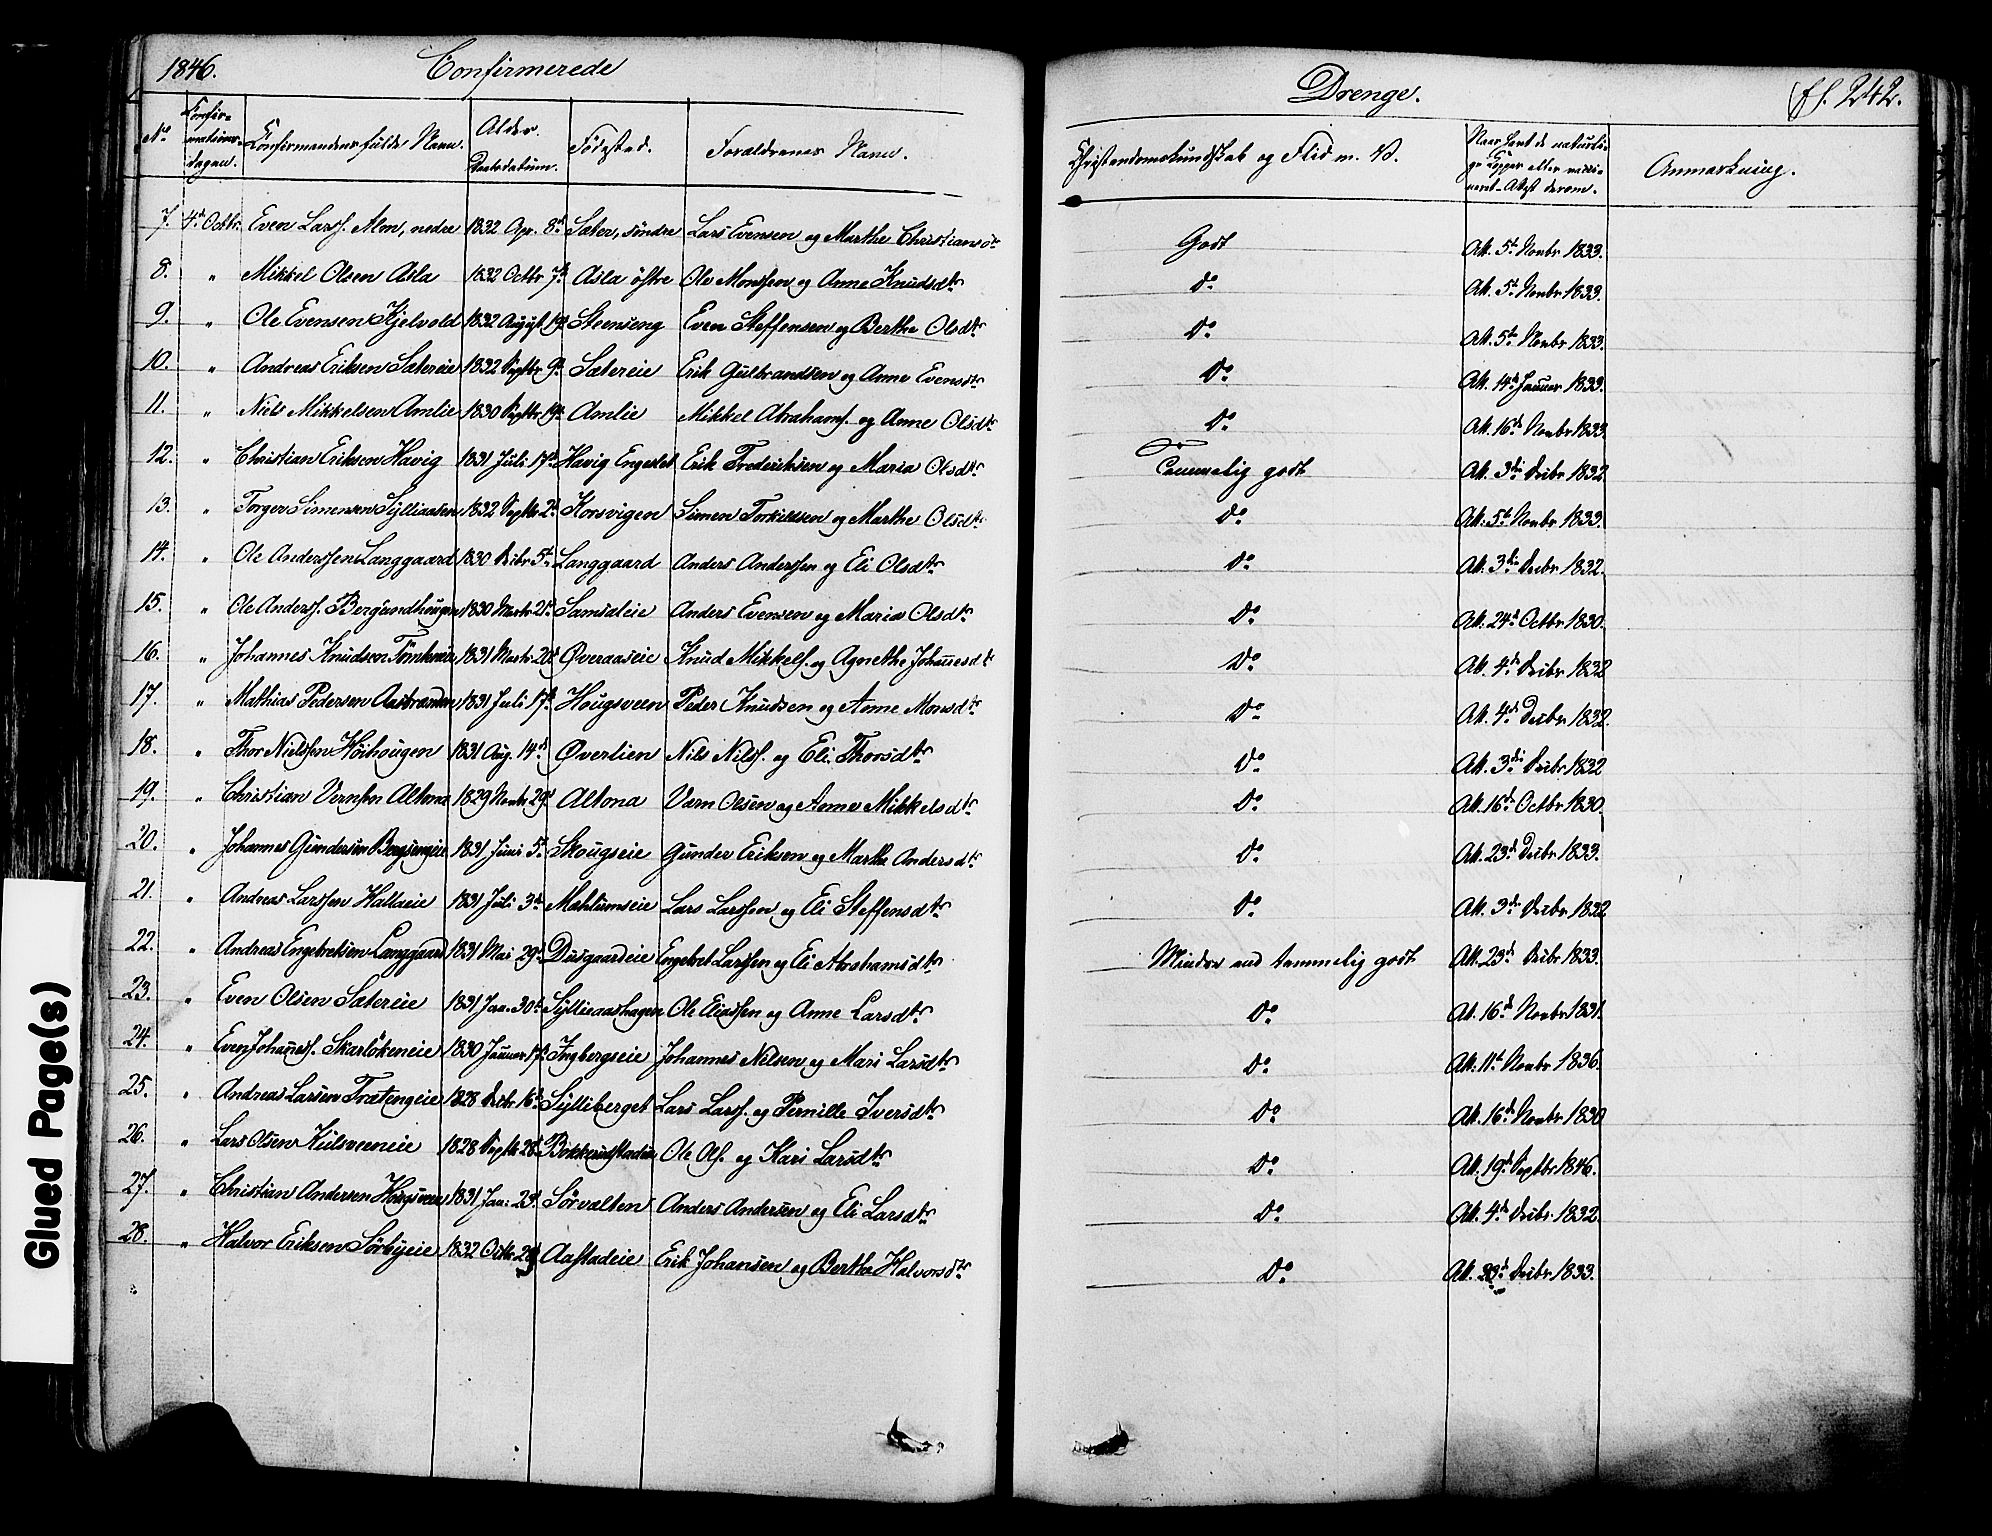 1846. Confirmerede Drenge. fl. 242.
No Confirmationsdagen. Confirmandens fulde Navn. Alder. Daabsdatum. Fødested. Forældrenes Navn. Christendomskundskab og Flid m. V. Naar havt de naturlige Kopper eller vaccineret. Attest derom. Anmærkning.
7. 4de Octbr. Even Larss. Mon, nedre 1832 Apr. 8de Sæter, söndre Lars Evensen og Marthe Christiansdtr Godt Att. 5te Novbr 1833.
8. " Mikkel Olsen Asla 1832 Octbr 7de Asla östre Ole Monssen og Anne Knudsdtr Do Att. 5te Novbr 1833.
9. " Ole Evensen Kjelvold 1832 August 19de Steenseng Even Steffensen og Berthe Olsdtr Do Att. 5te Novbr 1833.
10. " Andreas Eriksen Sætereie 1832 Septbr 9de Sætereie Erik Gulbrandsen og Anne Evensdtr Do Att. 14de Januar 1833.
11. " Niels Mikkelsen Amlie 1830 Septbr 19de Amlie Mikkel Abrahams. og Anne Olsdtr Do Att. 16de Novbr 1833.
12. " Christian Eriksen Havig 1831 Juli 17de Havig Engeslet Erik Frederiksen og Maria Olsdtr Temmelig godt Att. 3die Decbr 1832.
13. " Torger Simensen Sylliaasen 1832 Septbr 2den Korsvigen Simen Torkildsen og Marthe Olsdtr Do Att. 5te Novbr 1833.
14. " Ole Anderssen Langgaard 1830 Decbr 5te Langgaard Anders Anderssen og Eli Olsdtr Do Att. 3die Decbr 1832.
15. " Ole Anderss. Bergundhougen 1830 Marts 21de Samsaleie Anders Evensen og Maria Olsdtr Do Att. 24de Octbr 1830.
16. " Johannes Knudsen 1831 Marts 20de Øveraaseie Knud Mikkels. og Agnethe Johannesdtr Do Att. 4de Decbr 1832
17. " Mathias Pedersen 1831 Juli 17de Hougsveen Peder Knudsen og Anne Monsdtr Do Att. 4de Decbr 1832.
18. " Thor Nielssen Höihougen 1831 Aug. 14de Øverlien Nils Nilss. og Eli Thorsdtr Do Att. 3die Decbr 1832
19. " Christian Vernsen Altona 1829 Novbr 29de Altona Værn Olsen og Anne Mikkelsdtr Do Att. 16de Octbr 1830.
20. " Johannes Gundersen Bergsengeie 1831 Juni 5te Skougseie Gunder Eriksen og Marthe Andersdtr Do Att. 23de Decbr 1833.
21. " Andreas Larssen Hallaeie 1831 Juli 3die Mæhlumseie Lars Larssen og Eli Steffensdtr Do Att. 3die Decbr 1832
22. " Andreas Engebretsen Langgaard 1831 Mai 29de Diisgaardeie Engebret Larssen og Eli Abrahamsdtr Mindre end temmelig godt Att. 23de Decbr 1833.
23. " Even Olsen Sætereie 1831 Jan. 30te Syllieaashagen Ole Eliassen og Anne Larsdtr Do At. 16de Novbr 1831.
24. " Even Johannes. Skarlökeneie 1830 Januar 17de Ingbergseie Johannes Nielsen og Mari Larsdtr Do Att. 11te Novbr 1836.
25. " Andreas Larsen Frætengeie 1828 Decbr 16de Sylliberget Lars Larss. og Pernille Iversdtr Do Att. 16de Novbr 1830
26. " Lars Olsen Kulsveeneie 1828 Septbr 28de Ole Ols. og Kari Larsdtr Do Att. 19de Septbr 1846.
27. " Christian Andersen Hougsveen 1831 Jan: 23de Sörvalten Anders Andersen og Eli Larsdtr Do Att. 4de Decbr 1832.
28. " Halvor Eriksen Sörbyeie 1832 Octbr 28de Aastadeie Erik Johansen og Berthe Halvorsdtr Do Att. 23de Decbr 1833.
Glued Page(s)